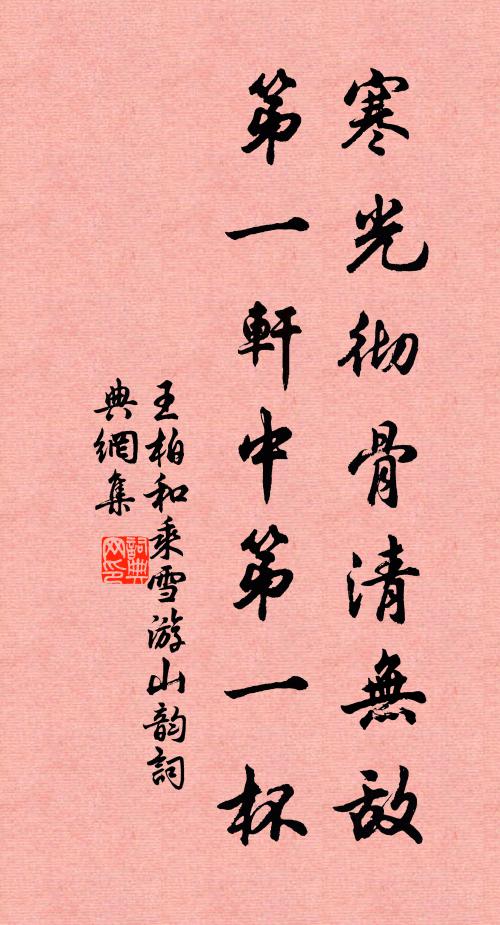 寒光彻骨清無敌
第一軒中第一杯
王柏和乘雪游山韵詞
典網集
詞典
网印